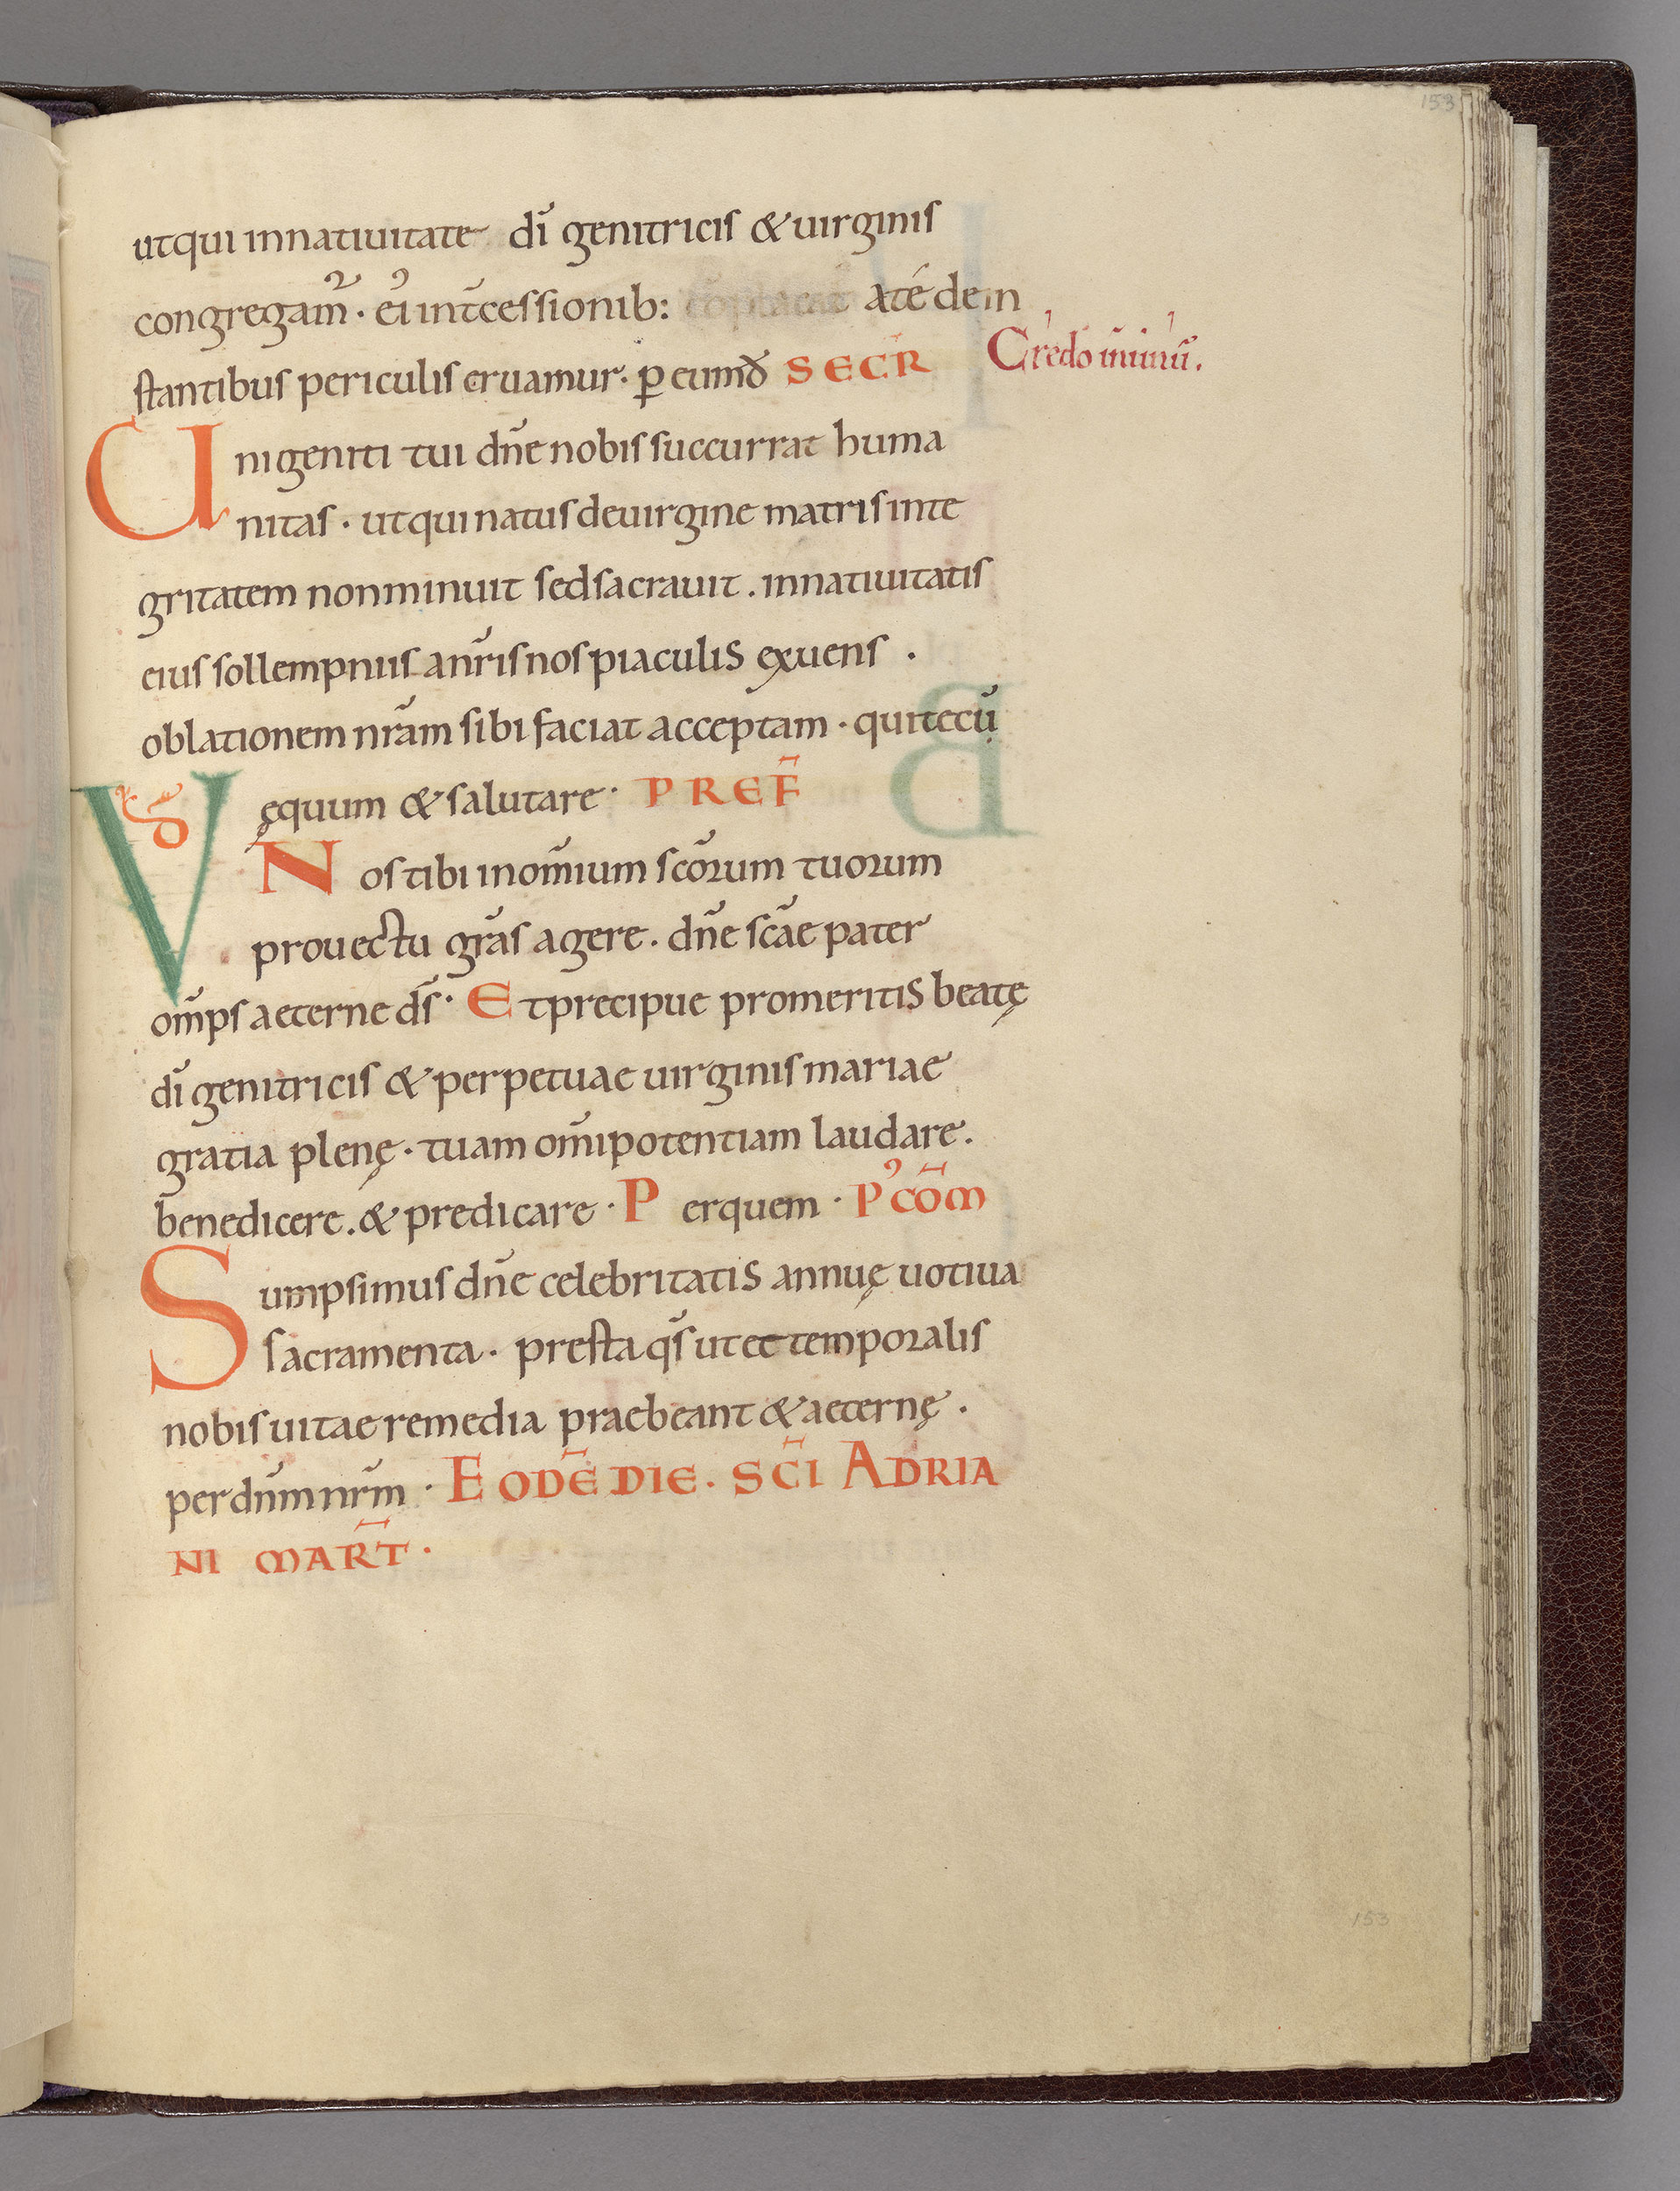 153
utqui innatiuitate di̅ genitricis & uirginis
congregam̅. ei᾽ int̅cessionib: a te̅ dein
stantibus periculis eruamur. ꝑ eumd̅ SECR̅ Credo in̅ unu̅.
Unigeniti tui dn̅e nobis succurrat huma
nitas. ut qui natus de uirgine matris inte
gritatem non minuit sed sacrauit. in natiuitatis
eius sollempniis a nr̅is nos piaculis exuens.
oblationem nr̅am sibi faciat acceptam. qui tecu̅
VD̅ ęquum & salutare. PREF̅
Nos tibi in om̅ium sc̅orum tuorum
prouectu gr̅as agere. dn̅e sc̅ae pater
om̅ps aeterne ds̅. Et precipue pro meritis beatę
di̅ genitricis & perpetuae uirginis mariae
gratia plenę. tuam om̅ipotentiam laudare.
benedicere. & predicare. Per quem. P᾽ CO̅M
Sumpsimus dn̅e celebritatis annuę uotiua
sacramenta. presta qs̅ ut et temporalis
nobis uitae remedia praebeant & aeternę.
per dn̅m nr̅m. EODE̅ DIE. SC̅I ADRIA
NI MART̅.
153